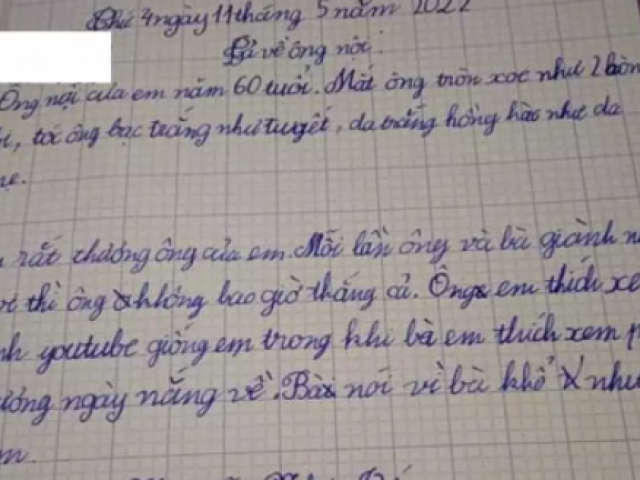 Thứ 4 ngày 11 tháng 5 năm 2022
Tả về ông nội.
Ông nội của em năm 60 tuổi. Mắt ông tròn xoe như 2 hòn
tóc ông bạc trắng như tuyết, da trắng hồng hào như da
rất thương ông của em. Mỗi lần ông và bà giành
thì ông không bao giờ thắng cả. Ông em thích xe
youtube giống em trong khi bà em thích xem
ngày nắng về. Bà nói vì bà khổ như